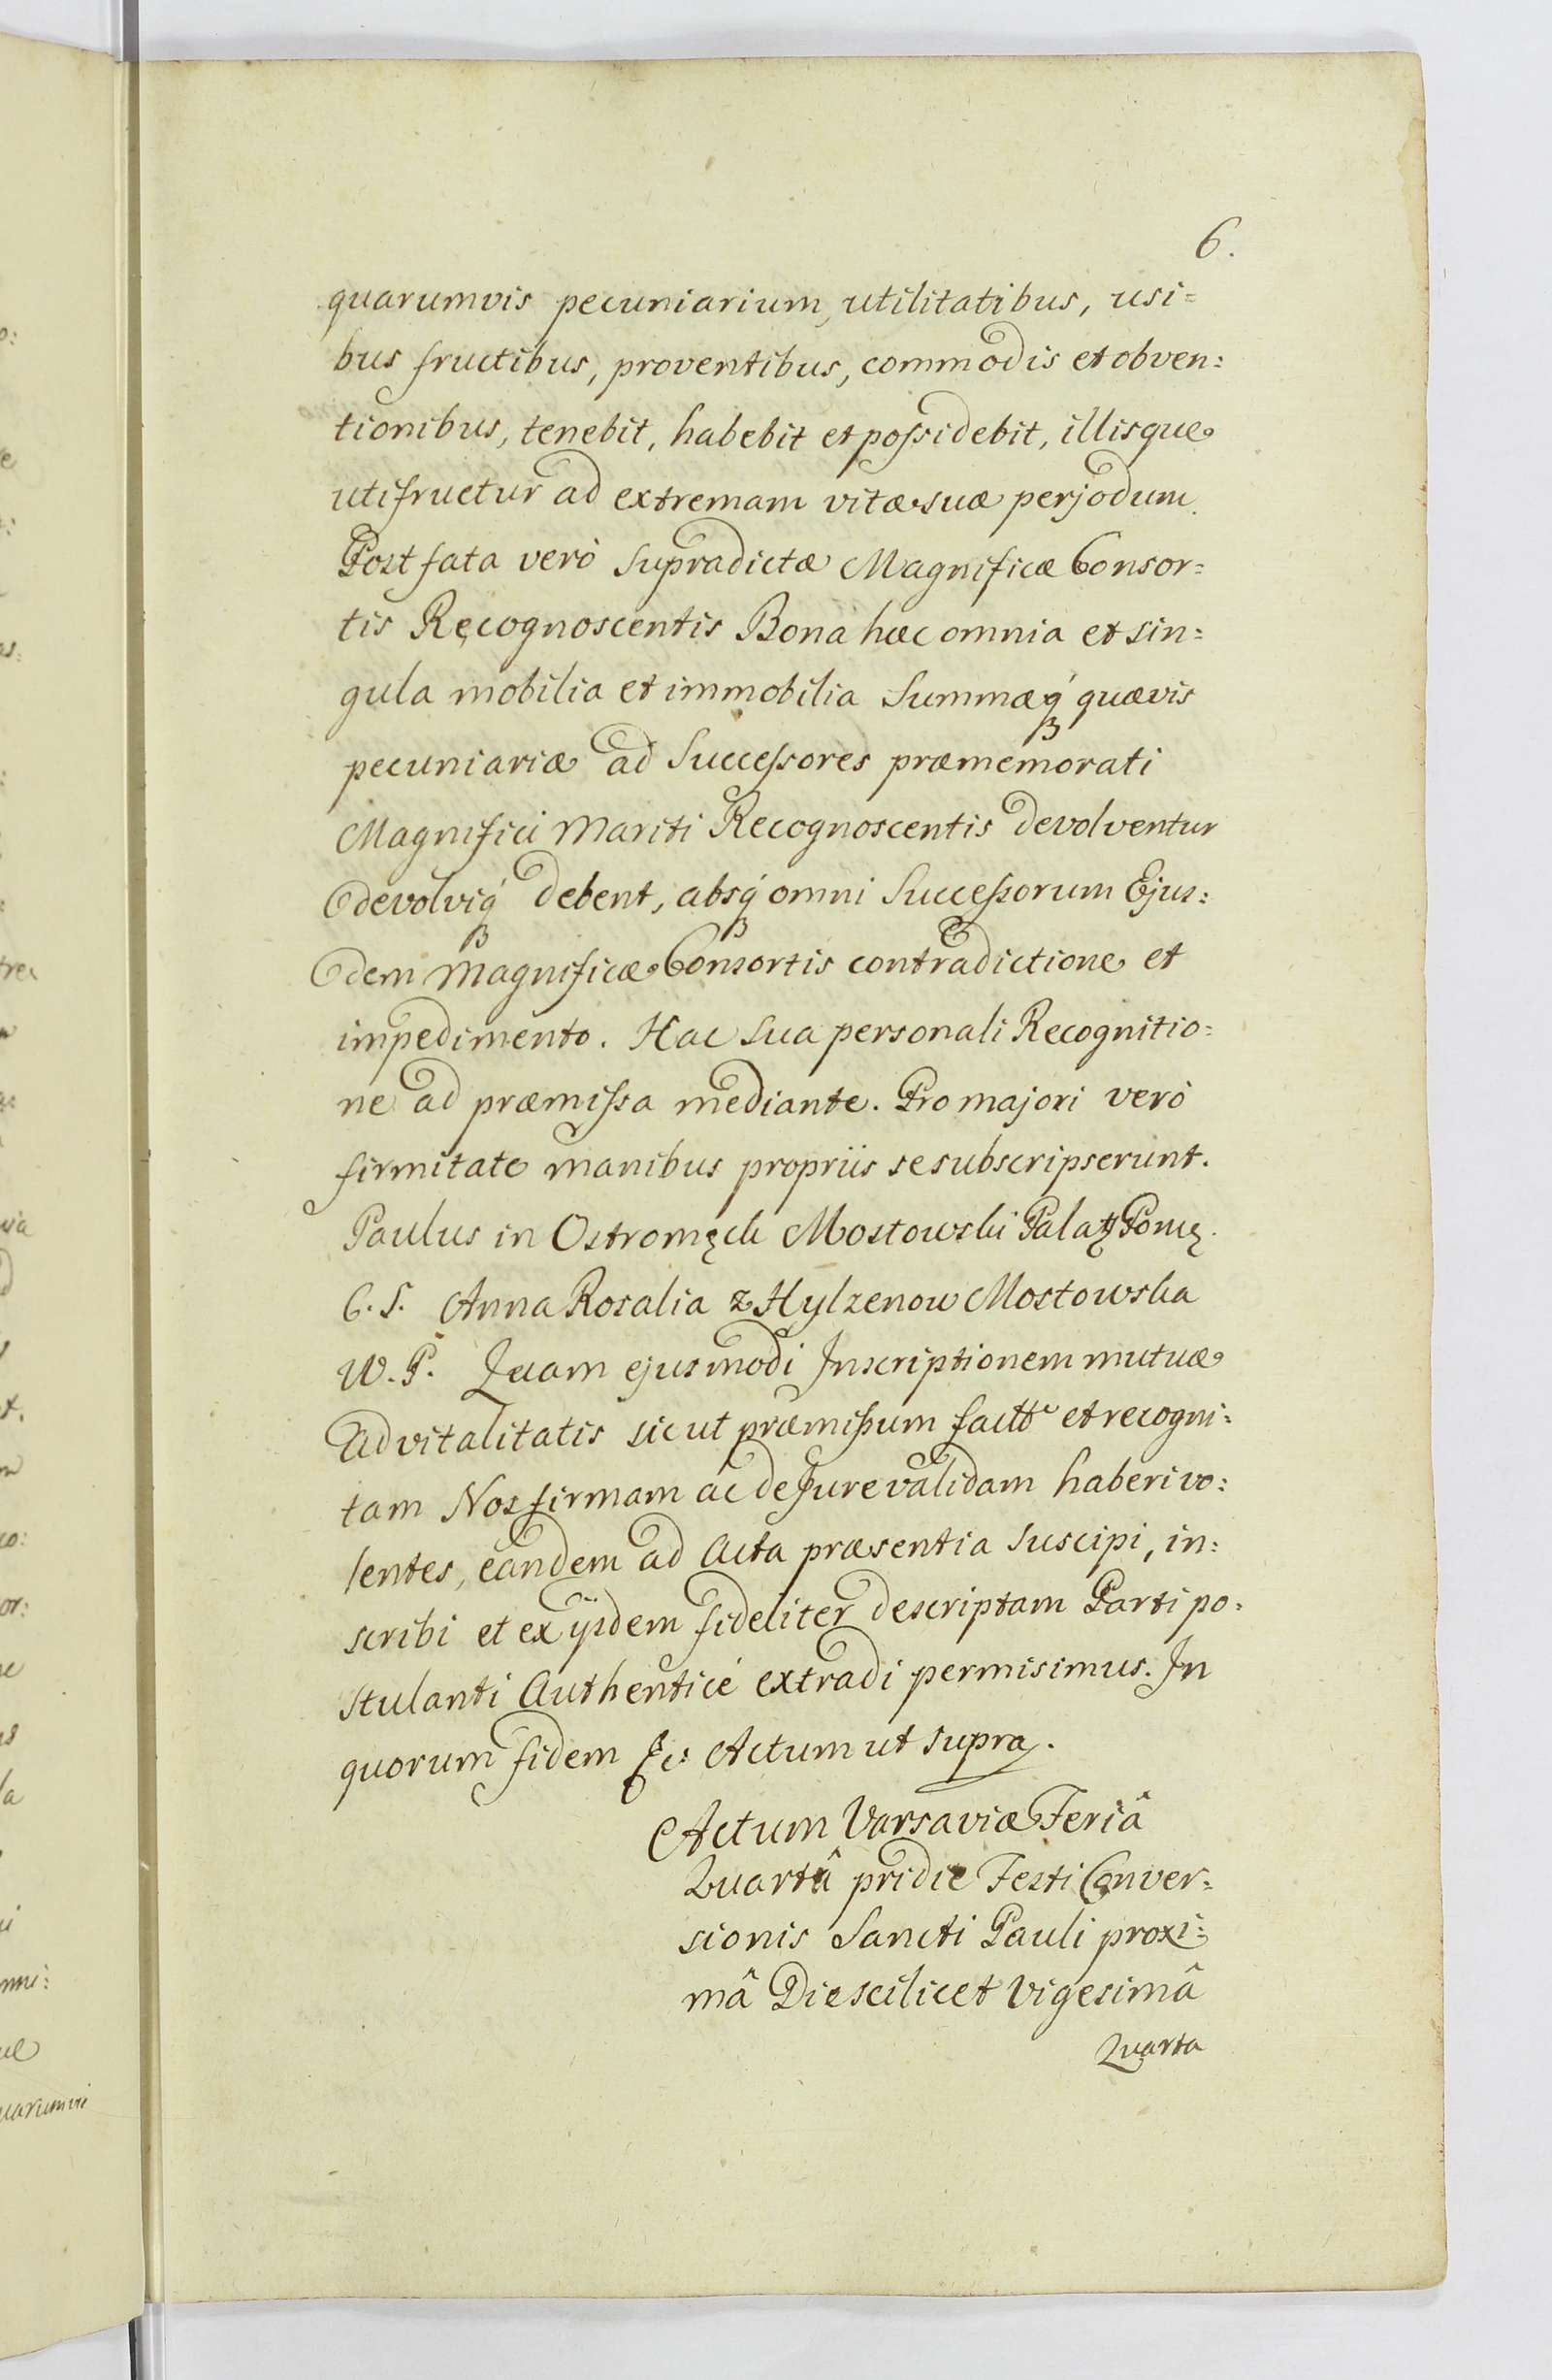 6.
quarumvis pecuniarium, utilitatibus, usi=
bus fructibus, proventibus, commodis et obven:
tionibus, tenebit, habebit et possidebit, illisque
utifruetur ad extremam vitæ suæ perjodum.
Post fata verò supradictæ Magnificæ Consor=
tis Recognoscentis Bona hæc omnia et sin=
gula mobilia et immobilia Summæq́ꝫ quævis
pecuniariæ ad Successores præmemorati
Magnifici Mariti Recognoscentis devolventur
devolviq́ꝫ debent, absq́ꝫ omni Successorum Ejus:
dem Magnificæ Consortis contradictione et
impedimento. Hac sua personali Recognitio=
ne ad præmissa mediante. Pro majori verò
firmitate manibus propriis se subscripserunt.
Paulus in Ostromęck Mostowski Palaꝫ Pomę.
C. S. Anna Rosalia z Hylzenow Mostowska
W. P. Quam ejusmodi Inscriptionem mutuæ
advitalitatis sicut præmissum et recogni:
tam Nos firmam ac de Jure validam haberi vo:
lentes, eandem ad Acta præsentia suscipi, in:
scribi et ex ijsdem fideliter descriptam Parti po=
stulanti Authenticé extradi permisimus. In
quorum fidem &c: Actum ut supra.
Actum Varsaviæ Feriâ
Quartâ pridie Festi Conver=
sionis Sancti Pauli proxi=
mâ Die scilicet Vigesimâ
Quarta
o:
e
tre
via
t.
co:
or:
la
mni:
uarumvis